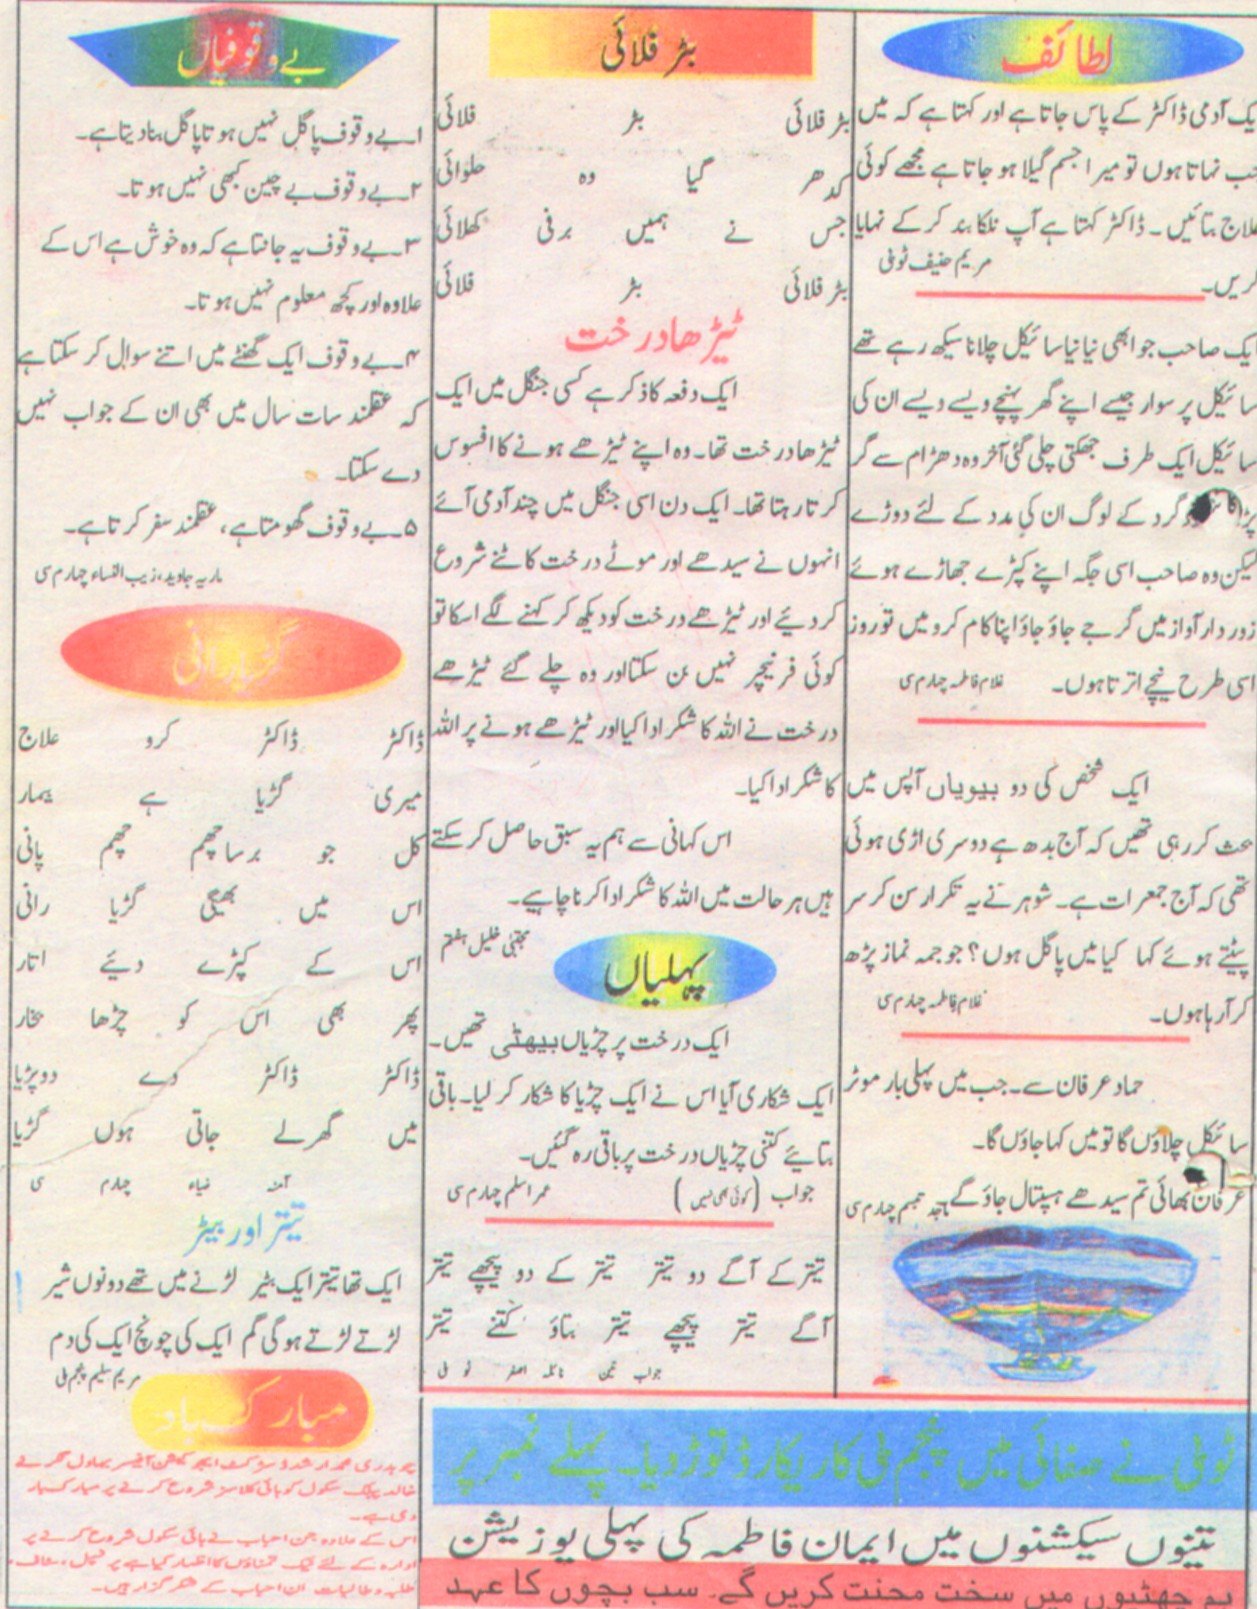 لطائف
یک آدمی ڈاکٹر کے پاس جاتا ہے اور کہتا ہے کہ میں
جب نہاتا ہوں تو میرا جسم گیلا ہو جاتا ہے مجھے کوئی
علاج بتائیں۔ ڈاکٹر کہتا ہے آپ نلکا بند کر کے نہایا
کریں۔
مریم حنیف ٹوٹی
ایک صاحب جو ابھی نیا نیا سائیکل چلانا سیکھ رہے تھے
سائیکل پر سوار جیسے اپنے گھر پہنچے ویسے ویسے ان کی
سائیکل ایک طرف جھکتی چلی گئی آخر وہ دھڑام سے گر
پڑا گرد کے لوگ ان کی مدد کے لئے دوڑے
لیکن وہ صاحب اسی جگہ اپنے کپڑے جھاڑے ہوئے
زور دار آواز میں گرجے جاؤ جاؤ اپنا کام کرو میں تو روز
اسی طرح نیچے اترتا ہوں۔ غلام فاطمہ چہارم سی
ایک شخص کی دو بیویاں آپس میں
بحث کر رہی تھیں کہ آج بدھ ہے دوسری اڑی ہوئی
تھی کہ آج جمعرات ہے۔ شوہر نے یہ تکرار سن کر سر
پیٹتے ہوئے کہا کیا میں پاگل ہوں؟ جو جمہ نماز پڑھ
کر آرہا ہوں۔ غلام فاطمہ چہارم سی
حماد عرفان سے۔ جب میں پہلی بار موٹر
سائیکل چلاؤں گا تو میں کہا جاؤں گا۔
عرفان بھائی تم سیدھے ہسپتال جاؤ گے چہارم سی
بٹر فلائی
بٹر فلائی بٹر فلائی
کدھر گیا وہ حلوائی
جس نے ہمیں برفی کھلائی
بٹر فلائی بٹر فلائی
ٹیڑھا درخت
ایک دفعہ کا ذکر ہے کسی جنگل میں ایک
ٹیڑھا درخت تھا۔ وہ اپنے ٹیڑھے ہونے کا افسوس
کرتا رہتا تھا۔ ایک دن اسی جنگل میں چند آدمی آئے
انہوں نے سیدھے اور موٹے درخت کاٹنے شروع
کر دیئے اور ٹیڑھے درخت کو دیکھ کر کہنے لگے اسکا تو
کوئی فرنیچر نہیں بن سکتا اور وہ چلے گئے ٹیڑھے
درخت نے اللہ کا شکر ادا کیا اور ٹیڑھے ہونے پر اللہ
کا شکر ادا کیا۔
اس کہانی سے ہم یہ سبق حاصل کر سکتے
ہیں ہر حالت میں اللہ کا شکر ادا کرنا چاہیے۔
مجتبیٰ خلیل ہفتم
پہلیاں
ایک درخت پر چڑیاں بیھٹی تھیں۔
ایک شکاری آیا اس نے ایک چڑیا کا شکار کر لیا۔ باقی
بتایئے کتنی چڑیاں درخت پر باقی رہ گئیں۔
جواب (کوئی بھی نہیں) عمر اسلم چہارم سی
تیتر کے آگے دو تیتر تیتر کے دو پیچھے تیتر
آگے تیتر پیچھے تیتر بتاؤ کتنے تیتر
جواب تین نائلہ اصغر ٹو ملی
بے وقوفیاں
۱۔ بے وقوف پاگل نہیں ہوتا پاگل بنا دیتا ہے۔
۲۔ بے وقوف بے چین کبھی نہیں ہوتا۔
۳۔ بے وقوف یہ جانتا ہے کہ وہ خوش ہے اس کے
علاوہ اور کچھ معلوم نہیں ہوتا۔
۴۔ بے وقوف ایک گھنٹے میں اتنے سوال کر سکتا ہے
کہ عقلمند سات سال میں بھی ان کے جواب نہیں
دے سکتا۔
۵۔ بے وقوف گھومتا ہے، عقلمند سفر کرتا ہے۔
ماریہ جاوید، زیب النساء چہارم سی
گڑیا رانی
ڈاکٹر ڈاکٹر کرو علاج
میری گڑیا ہے بیمار
کل جو برسا چھم چھم پانی
اس میں بھیگی گڑیا رانی
اس کے کپڑے دیئے اتار
پھر بھی اس کو چڑھا بخار
ڈاکٹر ڈاکٹر دے دو پڑیا
میں گھر لے جاتی ہوں گڑیا
آمنہ ضیاء چہارم سی
تیتر اور بیٹر
ایک تھا تیتر ایک بٹیر لڑنے میں تھے دونوں شیر
لڑتے لڑتے ہوگی گم ایک کی چونچ ایک کی دم
مریم سلیم پنجم ملی
مبارکباد
چوہدری محمد ارشد ڈسٹرکٹ ایجوکیشن آفیسر بہاول نگر نے
خالد پبلک سکول کو ہائی کلاسز شروع کرنے پر مبارکباد
دی ہے۔
اس کے علاوہ جن احباب نے ہائی سکول شروع کرنے پر
ادارہ کے لئے نیک تمناؤں کا اظہار کیا ہے پرنسپل، سٹاف،
طلبہ و طالبات ان احباب کے شکر گزار ہیں۔
ٹو ملی نے صفائی میں پنجم ملی کا ریکارڈ توڑ دیا۔ پہلے نمبر پر
تینوں سیکشنوں میں ایمان فاطمہ کی پہلی پوزیشن
ہم چھٹیوں میں سخت محنت کریں گے۔ سب بچوں کا عہد